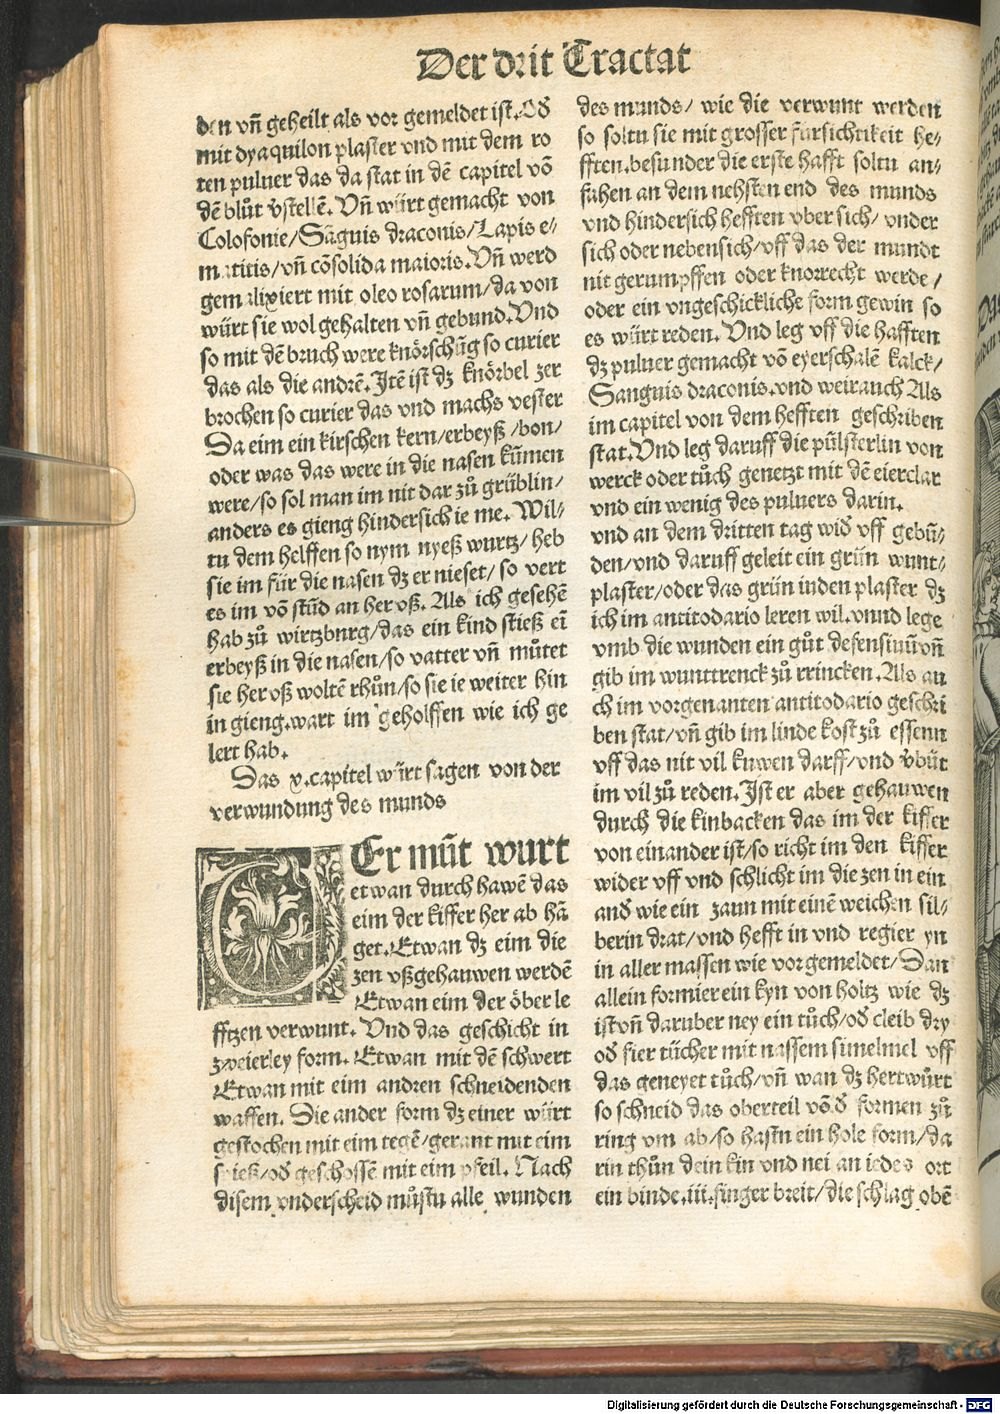 Der drit Tractat
den vñ geheilt als vor gemeldet ist. Oď
mit dyaquilon plaster vnd mit dem ro
ten puluer das da stat in dē capitel vō
dē blůt v̌stellē. Vñ würt gemacht von
Colofonie/Sāguis draconis/Lapis e-
matitis/vñ cōsolida maioris. Vñ werd
gemalixiert mit oleo rosarum/da von
würt sie wol gehalten vñ gebund. Vnd
so mit dē bruch were knörschāg so curier
das als die andrē. Itē ist dz knörbel zer
brochen so curier das vnd machs vester
Da eim ein kirschen kern/erbeyß/bon/
oder was das were in die nasen kūmen
were/so sol man im nit dar zů grüblin/
anders es gieng hindersich ie me. Wil-
tu dem helffen so nym nyeß wurtz/heb
sie im für die nasen dz er nieset/so vert
es im vō stūd an her vß. Als ich gesehē
hab zů wirtzbnrg/das ein kind stieß eī
erbeyß in die nasen/so vatter vñ můtet
sie her vß woltē rhůn/so sie ie weiter hin
in gieng. wart im geholffen wie ich ge
lert hab.
Das x. capitel würt sagen von der
verwundung des munds
DEr mūt wurt
etwan durch hawē das
eim der kiffer her ab hā
get. Etwan dz eim die
zen vßgehauwen werdē
Etwan eim der öber le
fftzen verwunt. Vnd das geschicht in
zweierley form. Etwan mit dē schwert
Etwan mit eim andren schneidenden
waffen. Die ander form dz einer würt
gestochen mit eim tegē/gerant mit eim
spieß/oď geschossē mit eim pfeil. Nach
disem vnderscheid můstu alle wunden
des munds/ wie die verwunt werden
so soltu sie mit grosser fürsichtikeit he-
fften. besunder die erste hafft soltu an-
fahen an dem nehsten end des munds
vnd hindersich hefften vber sich/ vnder
sich oder nebensich/vff das der mundt
nit gerumpffen oder knorrecht werde/
oder ein vngeschickliche form gewin so
es würt reden. Vnd leg vff die hafften
dz puluer gemacht vō eyerschalē kalck/
Sanguis draconis. vnd weirauch Als
im capitel von dem hefften geschriben
stat. Vnd leg daruff die pülsterlin von
werck oder tůch genetzt mit dē eierclar
vnd ein wenig des puluers darin.
vnd an dem dritten tag wiď vff gebū-
den/vnd daruff geleit ein grün wunt-
plaster/oder das grün inden plaster dz
ich im antitodario leren wil. vnnd lege
vmb die wunden ein gůt defensiuū vñ
gib im wunttrenck zů rrincken. Als au
ch im vorgenanten antitodario geschri
ben stat/vñ gib im linde kost zů essenn
vff das nit vil kuwen darff/vnd v̌büt
im vil zů reden. Ist er aber gehauwen
durch die kinbacken das im der kiffer
von einander ist/so richt im den kiffer
wider vff vnd schlicht im die zen in ein
anď wie ein zaun mit einē weichen sil-
berin drat/vnd hefft in vnd regier yn
in aller massen wie vor gemeldet/Dan
allein formier ein kyn von holtz wie dz
ist vñ daruber ney ein tůch/oď cleib dry
oď fier tücher mit nassem simelmel vff
das geneyet tůch/vñ wan dz hert würt
so schneid das oberteil vō ď formen zů
ring vm ab/so hastn ein hole form/da
rin thůn dein kin vnd nei an iedes ort
ein binde. iii. finger breit/die schlag obē
Digitalisierung gefördert durch die Deutsche Forschungsgemeinschaft - DFG